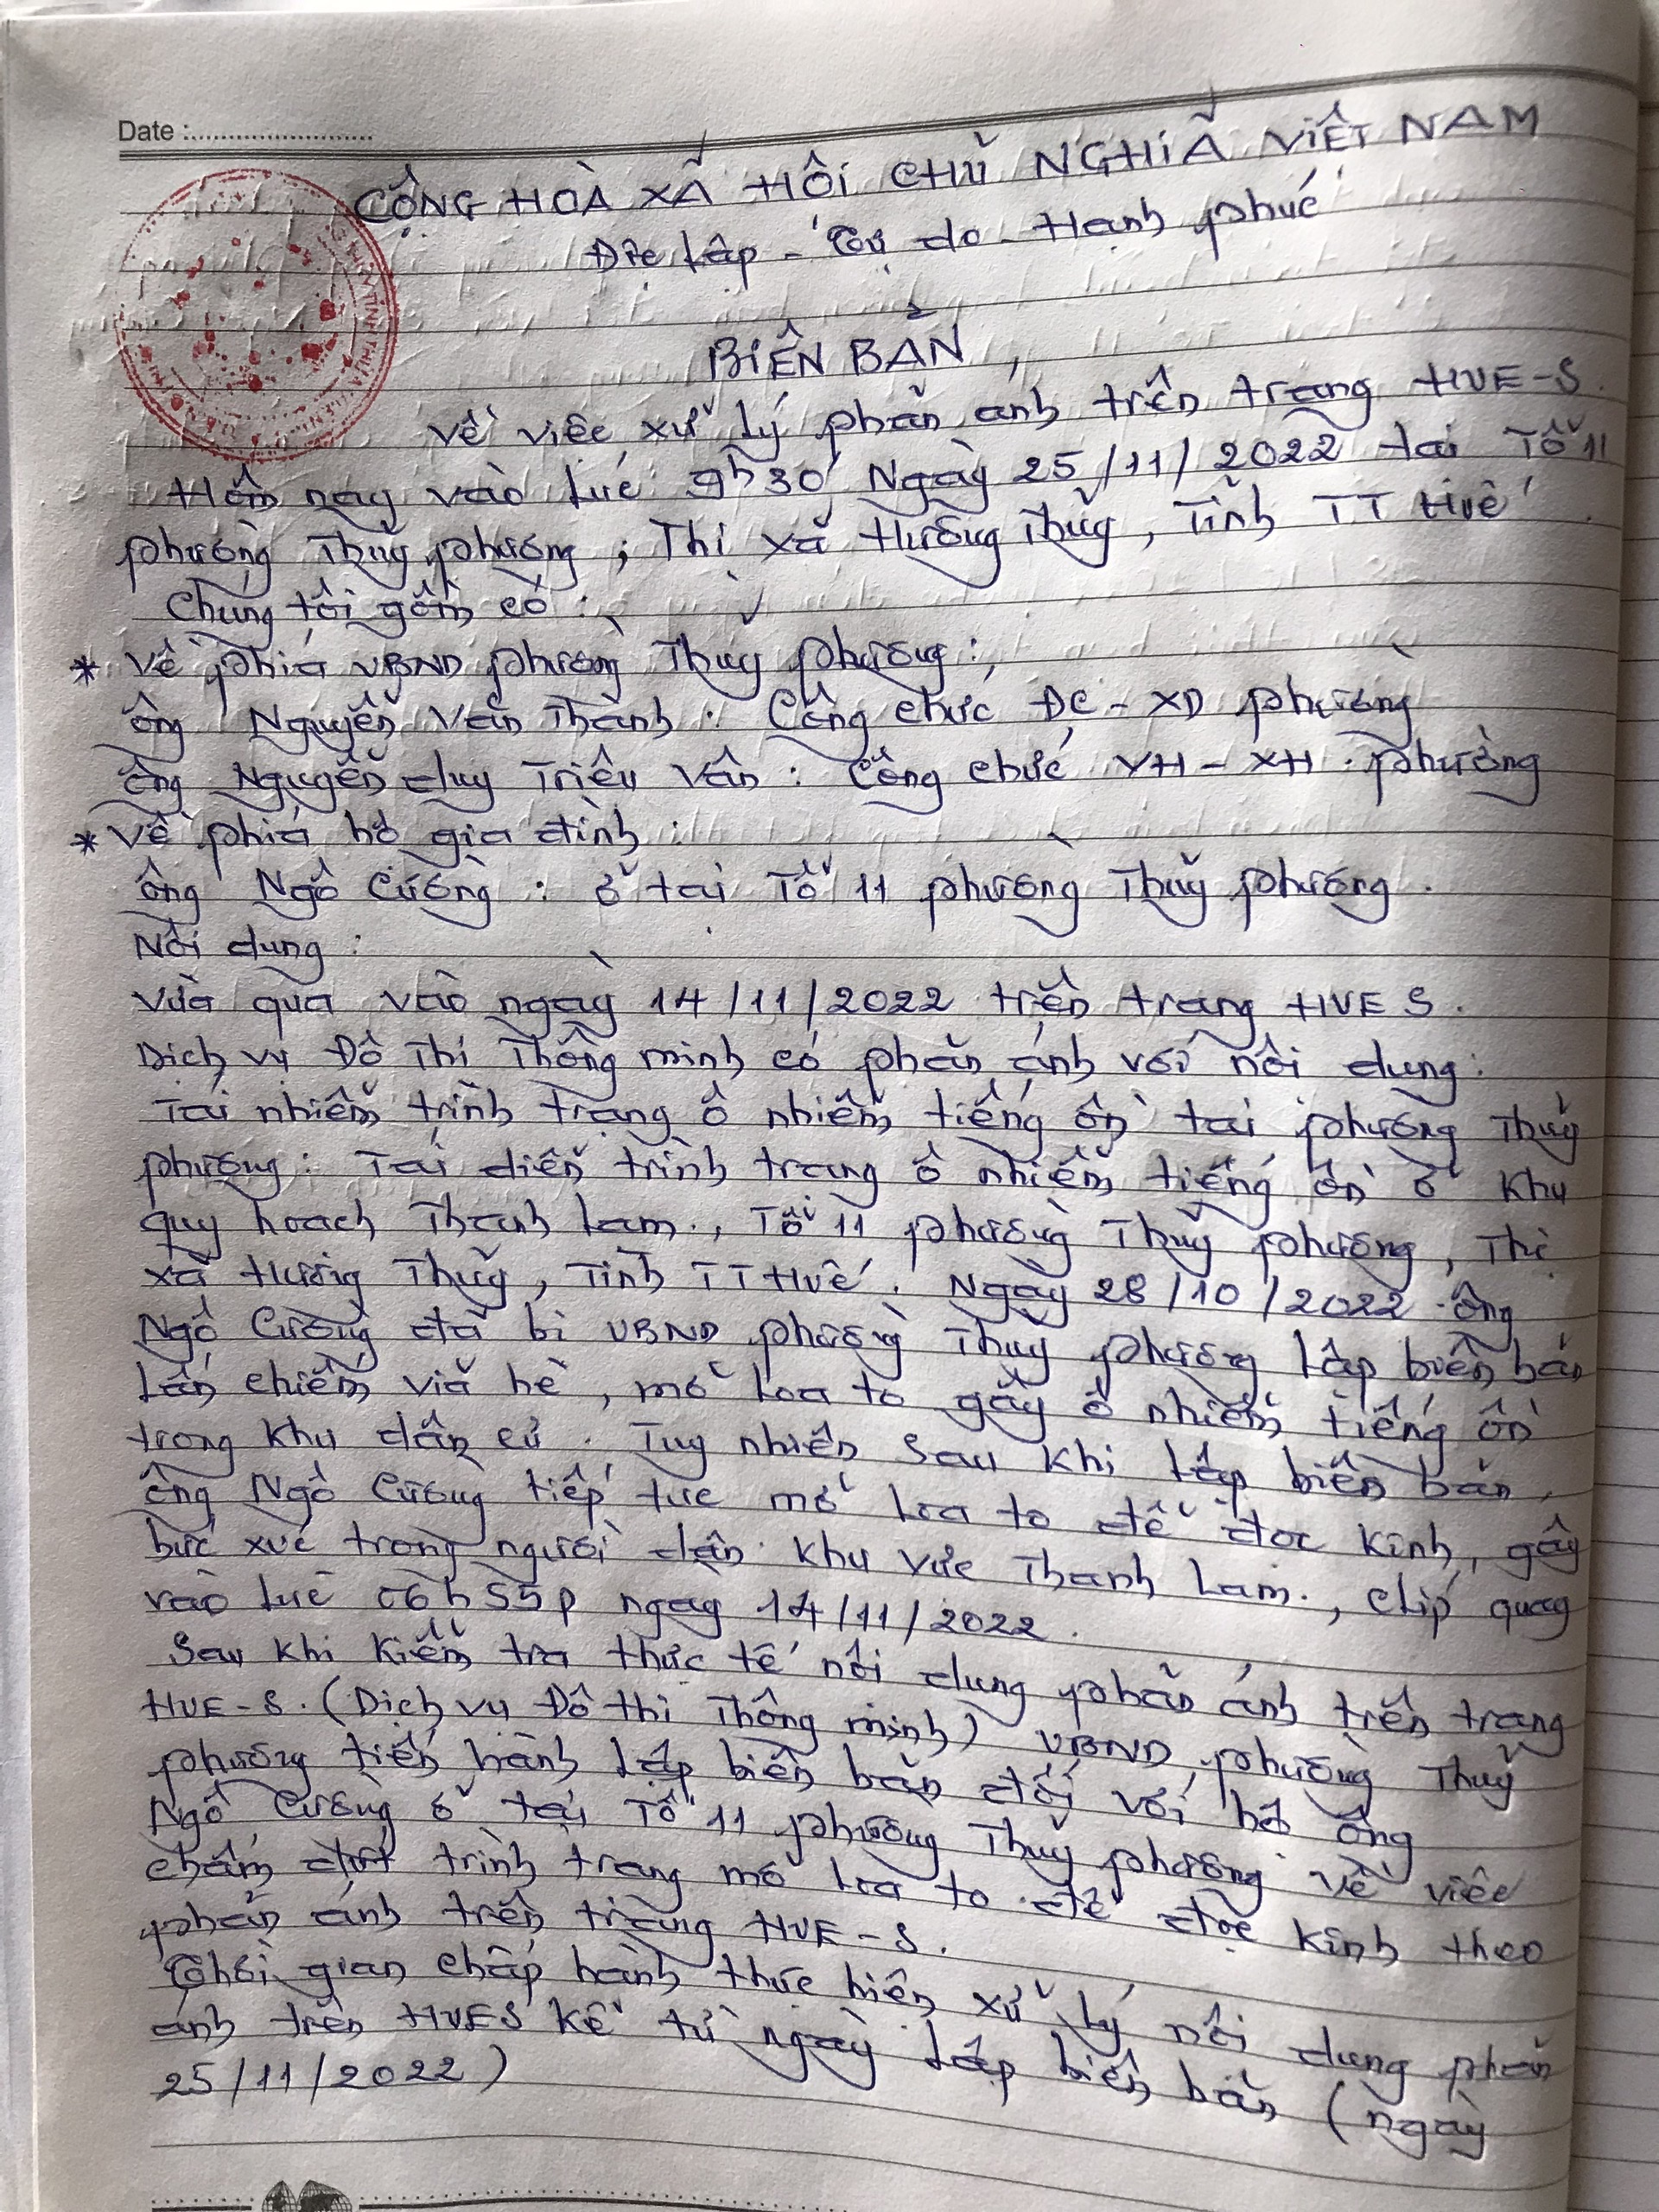 Date :
CỘNG HOÀ XÃ HỘI CHỦ NGHĨA VIỆT NAM
Độc lập - Tự do - Hạnh phúc
BIÊN BẢN
Về việc xử lý phản ánh trên trang HUE-S.
Hôm nay vào lúc 9h30' Ngày 25/11/2022 tại Tổ 11
phường Thuỷ phương, Thị xã Hương Thuỷ, Tỉnh TT Huế.
Chúng tôi gồm có :
* Về phía UBND phường Thuỷ phương :
ông Nguyễn Văn Thành : Công chức ĐC - XD phường
ông Nguyễn duy Triệu Vân : Công chức VH - XH phường
* Về phía hộ gia đình :
ông Ngô Cường : ở tại Tổ 11 phường Thuỷ phương.
Nội dung :
Vừa qua vào ngày 14/11/2022 trên trang HUE S.
Dịch vụ Đô Thị Thông minh có phản ánh với nội dung :
Tái nhiễm trình trạng ô nhiễm tiếng ồn tại phường Thuỷ
phương : Tái diễn trình trạng ô nhiễm tiếng ồn ở khu
quy hoạch Thanh Lam, Tổ 11 phường Thuỷ phương, Thị
xã Hương Thuỷ, Tỉnh TT Huế. Ngày 28/10/2022 ông
Ngô Cường đã bị UBND phường Thuỷ phương lập biên bản
lấn chiếm vỉa hè, mở loa to gây ô nhiễm tiếng ồn
trong khu dân cư. Tuy nhiên sau khi lập biên bản,
ông Ngô Cường tiếp tục mở loa to để đọc kinh, gây
bức xúc trong người dân khu vực Thanh Lam., clip quay
vào lúc 06h55p ngay 14/11/2022.
Sau khi kiểm tra thực tế nội dung phản ánh trên trang
HUE-S. (Dịch vụ Đô thị Thông minh) UBND phường Thuỷ
phương tiến hành lập biên bản đối với hộ ông
Ngô Cường ở tại Tổ 11 phường Thuỷ phương về việc
chấm dứt trình trạng mở loa to để đọc kinh theo
phản ánh trên trang HUE-S.
Thời gian chấp hành thực hiện xử lý nội dung phản
ánh trên HUES kể từ ngày lập biên bản (ngày
25/11/2022)